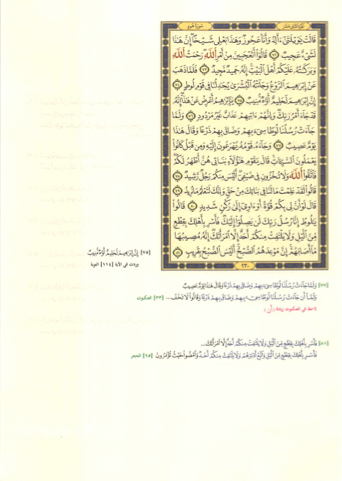 الجزء الثاني عشر
سورة هود
قَالَتْ يَٰوَيْلَتَىٰٓ ءَأَلِدُ وَأَنَا۠ عَجُوزٌ وَهَٰذَا بَعْلِى شَيْخًا إِنَّ هَٰذَا
لَشَىْءٌ عَجِيبٌ ٧٢ قَالُوٓا۟ أَتَعْجَبِينَ مِنْ أَمْرِ ٱللَّهِ رَحْمَتُ ٱللَّهِ
وَبَرَكَٰتُهُۥ عَلَيْكُمْ أَهْلَ ٱلْبَيْتِ إِنَّهُۥ حَمِيدٌ مَّجِيدٌ ٧٣ فَلَمَّا ذَهَبَ
عَنْ إِبْرَٰهِيمَ ٱلرَّوْعُ وَجَآءَتْهُ ٱلْبُشْرَىٰ يُجَٰدِلُنَا فِى قَوْمِ لُوطٍ ٧٤
إِنَّ إِبْرَٰهِيمَ لَحَلِيمٌ أَوَّٰهٌ مُّنِيبٌ ٧٥ يَٰٓإِبْرَٰهِيمُ أَعْرِضْ عَنْ هَٰذَآ إِنَّهُۥ
قَدْ جَآءَ أَمْرُ رَبِّكَ وَإِنَّهُمْ ءَاتِيهِمْ عَذَابٌ غَيْرُ مَرْدُودٍ ٧٦ وَلَمَّا
جَآءَتْ رُسُلُنَا لُوطًا سِىٓءَ بِهِمْ وَضَاقَ بِهِمْ ذَرْعًا وَقَالَ هَٰذَا
يَوْمٌ عَصِيبٌ ٧٧ وَجَآءَهُۥ قَوْمُهُۥ يُهْرَعُونَ إِلَيْهِ وَمِن قَبْلُ كَانُوا۟
يَعْمَلُونَ ٱلسَّيِّـَٔاتِ قَالَ يَٰقَوْمِ هَٰٓؤُلَآءِ بَنَاتِى هُنَّ أَطْهَرُ لَكُمْ
فَٱتَّقُوا۟ ٱللَّهَ وَلَا تُخْزُونِ فِى ضَيْفِىٓ أَلَيْسَ مِنكُمْ رَجُلٌ رَّشِيدٌ ٧٨
قَالُوا۟ لَقَدْ عَلِمْتَ مَا لَنَا فِى بَنَاتِكَ مِنْ حَقٍّ وَإِنَّكَ لَتَعْلَمُ مَا نُرِيدُ ٧٩
قَالَ لَوْ أَنَّ لِى بِكُمْ قُوَّةً أَوْ ءَاوِىٓ إِلَىٰ رُكْنٍ شَدِيدٍ ٨٠ قَالُوا۟
يَٰلُوطُ إِنَّا رُسُلُ رَبِّكَ لَن يَصِلُوٓا۟ إِلَيْكَ فَأَسْرِ بِأَهْلِكَ بِقِطْعٍ
مِّنَ ٱلَّيْلِ وَلَا يَلْتَفِتْ مِنكُمْ أَحَدٌ إِلَّا ٱمْرَأَتَكَ إِنَّهُۥ مُصِيبُهَا
مَآ أَصَابَهُمْ إِنَّ مَوْعِدَهُمُ ٱلصُّبْحُ أَلَيْسَ ٱلصُّبْحُ بِقَرِيبٍ ٨١
٢٣٠
[٧٥] إِنَّ إِبْرَٰهِيمَ لَحَلِيمٌ أَوَّٰهٌ مُّنِيبٌ
وردت في الآية [١١٤] التوبة
[٧٧] وَلَمَّا جَآءَتْ رُسُلُنَا لُوطًا سِىٓءَ بِهِمْ وَضَاقَ بِهِمْ ذَرْعًا وَقَالَ هَٰذَا يَوْمٌ عَصِيبٌ
وَلَمَّآ أَن جَآءَتْ رُسُلُنَا لُوطًا سِىٓءَ بِهِمْ وَضَاقَ بِهِمْ ذَرْعًا وَقَالُوا۟ لَا تَخَفْ... [٣٣] العنكبوت
لاحظ في العنكبوت زيادة (أن)
[٨١] فَأَسْرِ بِأَهْلِكَ بِقِطْعٍ مِّنَ ٱلَّيْلِ وَلَا يَلْتَفِتْ مِنكُمْ أَحَدٌ إِلَّا ٱمْرَأَتَكَ...
فَأَسْرِ بِأَهْلِكَ بِقِطْعٍ مِّنَ ٱلَّيْلِ وَٱتَّبِعْ أَدْبَٰرَهُمْ وَلَا يَلْتَفِتْ مِنكُمْ أَحَدٌ وَٱمْضُوا۟ حَيْثُ تُؤْمَرُونَ [٦٥] الحجر